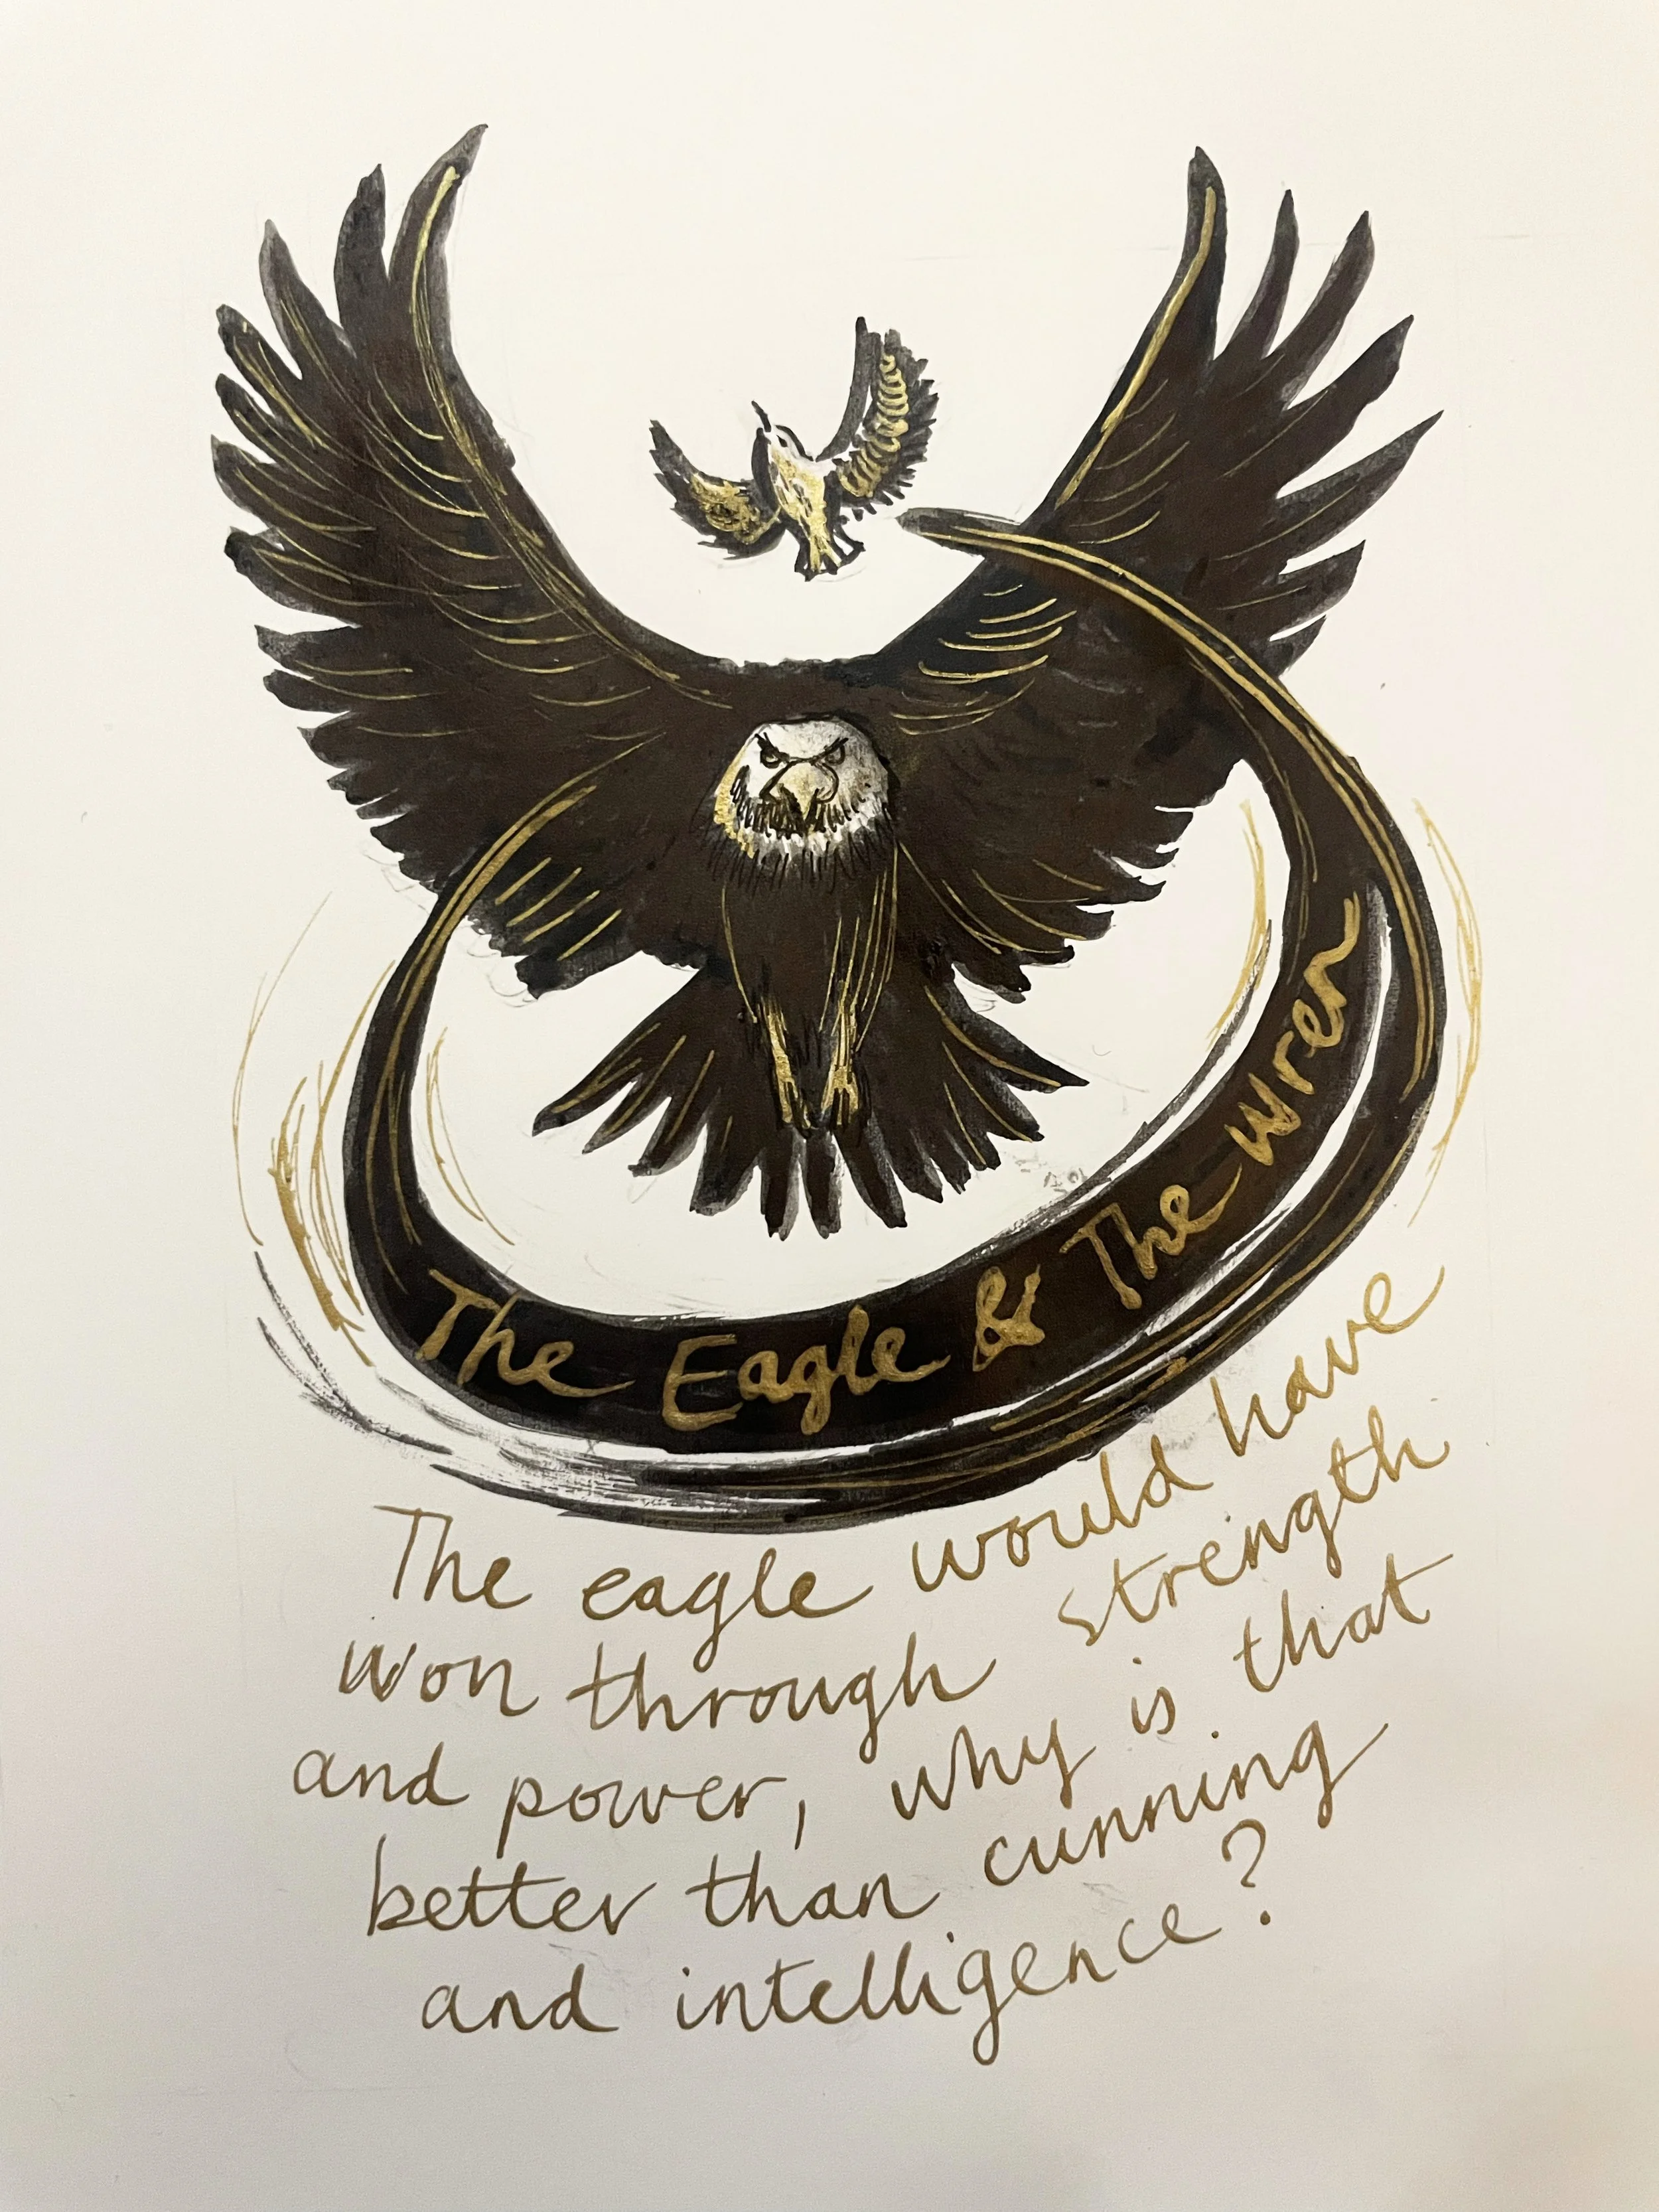 The Eagle & The Wren
The eagle would have
won through strength
and power, why is that
better than cunning
and intelligence?